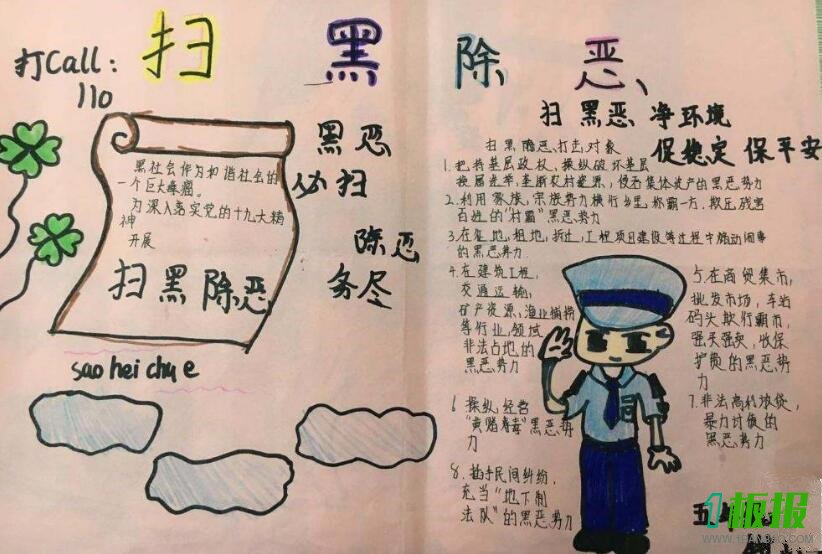 扫 黑 除 恶、
打Call：
110
黑社会作为和谐社会的
一个巨大毒瘤。
为深入落实党的十九大精
神
开展
扫黑除恶
sao hei chu e
黑恶
必扫
除恶
务尽
扫黑恶 净环境
促稳定 保平安
扫黑除恶、打击对象
1.把持基层政权，操纵破坏基层
换届选举，垄断农村资源，侵吞集体资产的黑恶势力
2.利用家族，宗族势力横行乡里，称霸一方，欺压残害
百姓的“村霸”黑恶势力
3.在征地，租地，拆迁，工程项目建设等过程中煽动闹事
的黑恶势力
4.在建筑工程，
交通运输，
矿产资源，渔业捕捞
等行业，领域
非法占地的
黑恶势力
5.在商贸集市，
批发市场，车站
码头欺行霸市，
强买强卖，收保
护费的黑恶势
力
6.操纵经营
“黄赌毒”黑恶势
力
7.非法高利放贷，
暴力讨债的
黑恶势力
8.插手民间纠纷，
充当“地下制
法队”的黑恶势力
五
1板报
WWW.1BANBAO.COM